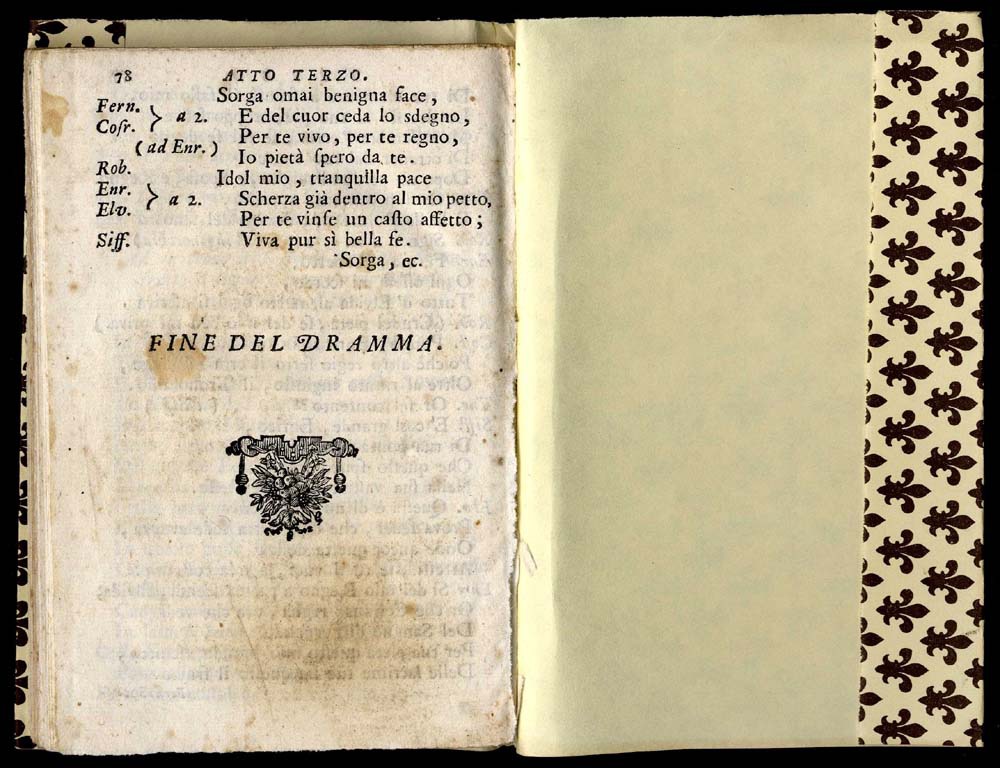 78 ATTO TERZO.
Sorga omai benigna face,
Fern. } a 2. E del cuor ceda lo sdegno,
Coſr. Per te vivo, per te regno,
(ad Enr.) Io pietà ſpero da te.
Rob. Idol mio, tranquilla pace
Enr. } a 2. Scherza già dentro al mio petto,
Elv. Per te vinſe un caſto affetto;
Siff. Viva pur sì bella fe.
Sorga, ec.
FINE DEL DRAMMA.